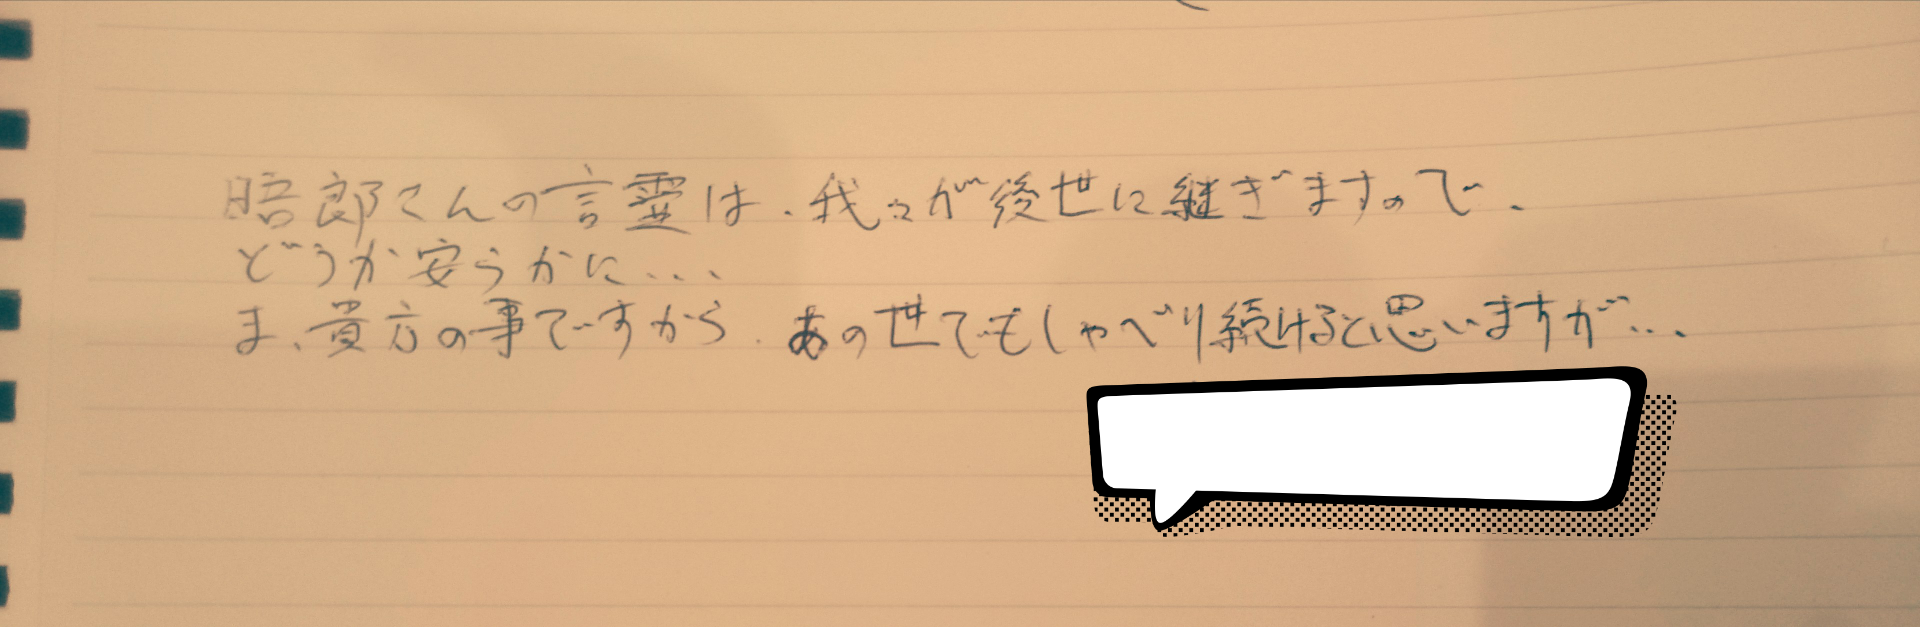 晤郎さんの言霊は、我々が後世に継ぎますので、
どうか安らかに...
ま、貴方の事ですから、あの世でもしゃべり続けると思いますが...